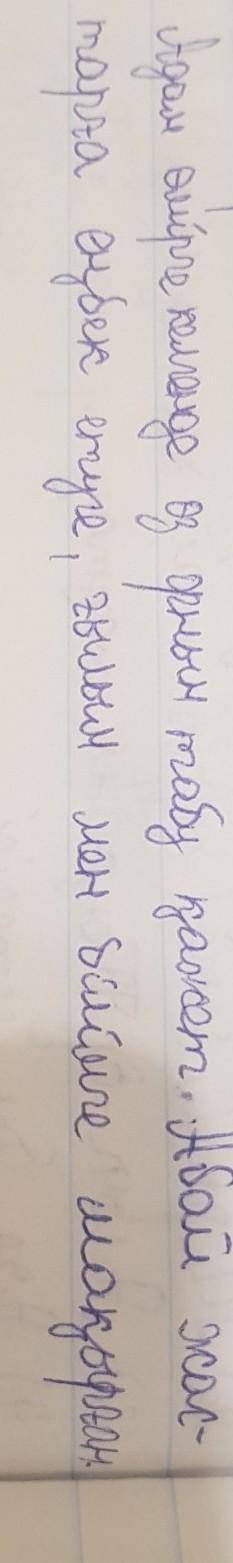 Адам өмірге келгенде өз орнын табу қажет. Абай жас-
тарға еңбек етуге, ғылым мен білімге шақырған.